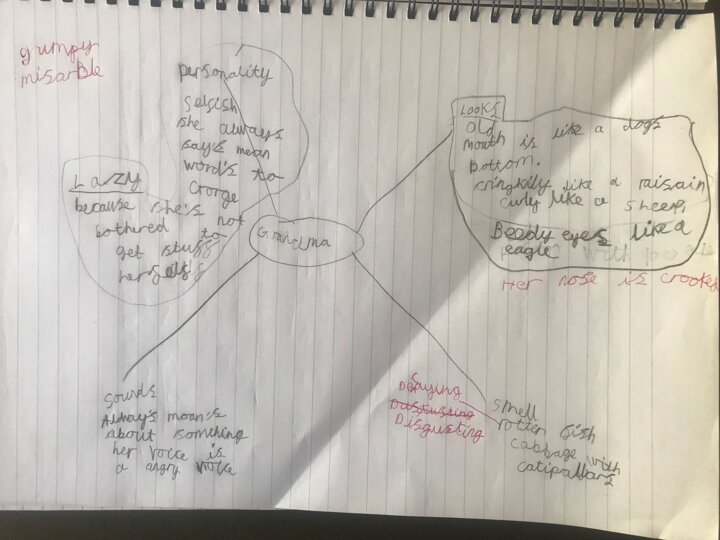 grumpy
misarble
personality
selfish
she always
says mean
words to
Crorge
Lazy
because she's not
bothered to
get stuff
herself
Grandma
Looks
old
mouth is like a dogs
bottom.
cringkilly like a raisain
curly like a sheep,
Beedy eyes like a
eagle
Her nose is crooked
sounds
Always moan's
about something
her voice is
a angry voice
Disgusting
smell
rotten fish
cabbage with
catipallars